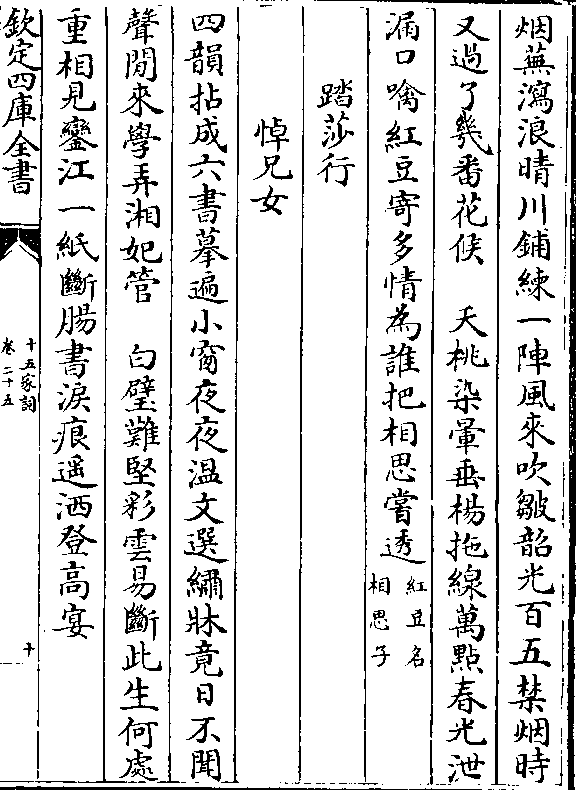 烟蕪瀉浪晴川鋪練一陣風來吹皺韶光百五禁烟時
又過了幾番花候　天桃染暈垂楊拖線萬點春光泄
漏口喻紅豆寄多情為誰把相思嘗透紅豆名相思子
踏莎行
悼兄女
四韻拈成六書摹遍小窗夜夜溫文選繡牀竟日不聞
聲閒來學弄湘妃管　白璧難堅彩雲易斷此生何處
重相見鑾江一紙斷腸書淚痕遥洒登高宴
欽定四庫全書
十五家詞
卷二十五
十